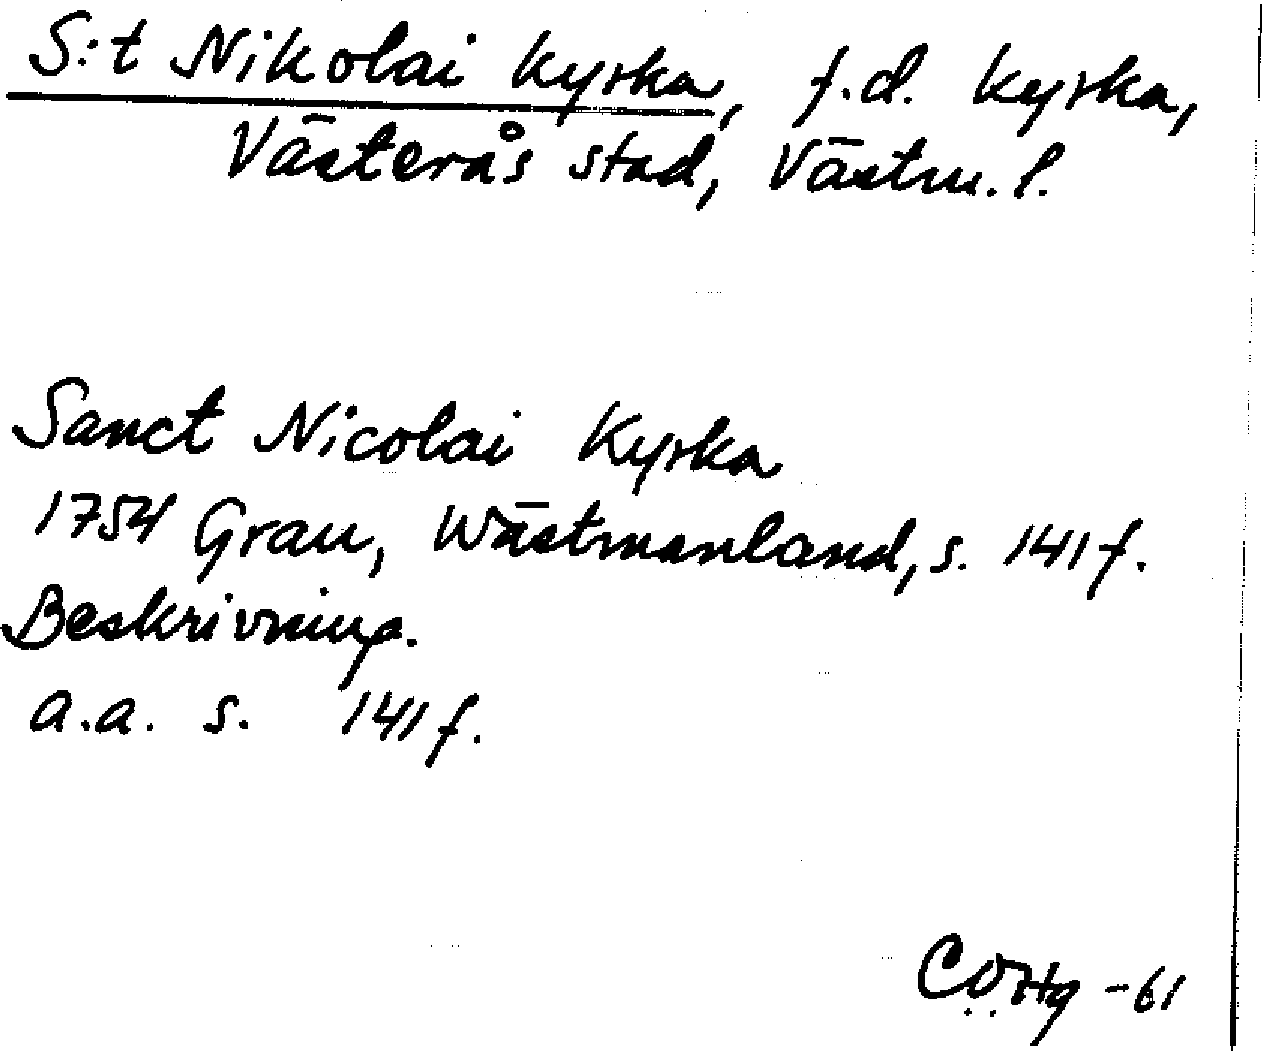 S:t Nikolai Kyrka, f.d. kyrka,
Västerås stad, Västm. l.
Sanct Nicolai Kyrka
1754 Grau, Wästmanland, s. 141 f.
Beskrivning.
a.a. s. 141 f.
-61